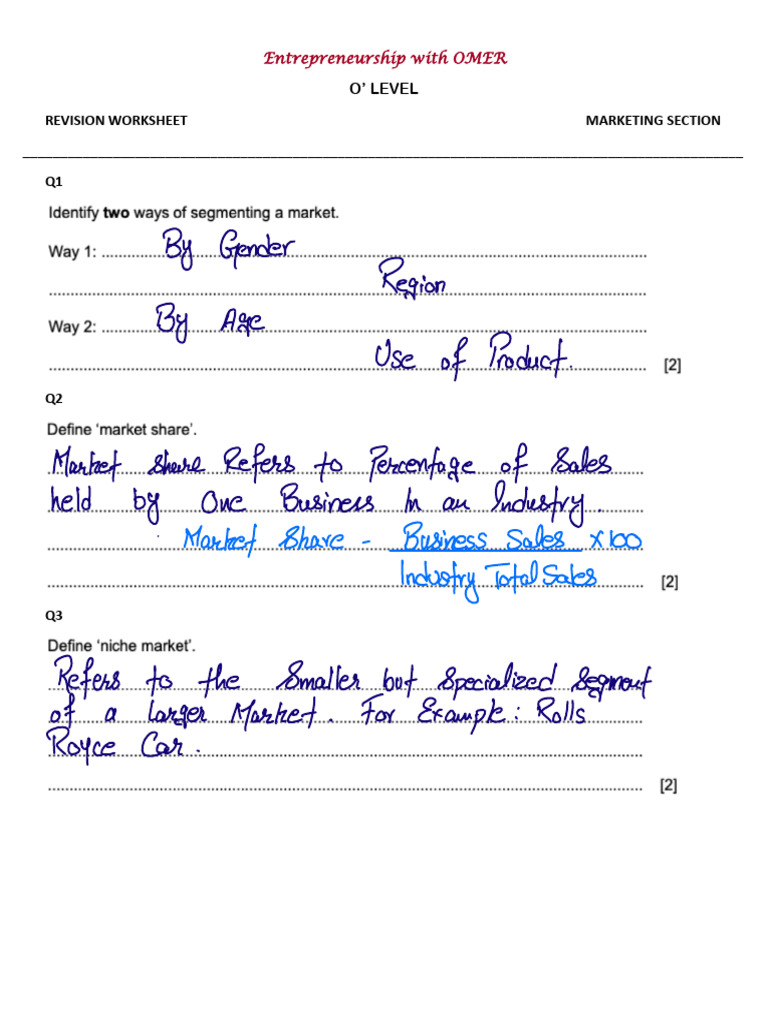 Entrepreneurship with OMER
O' LEVEL
REVISION WORKSHEET MARKETING SECTION
Q1
Identify two ways of segmenting a market.
Way 1: By Gender
Region
Way 2: By Age
Use of Product. [2]
Q2
Define 'market share'.
Market share Refers to Percentage of Sales
held by One Business In an Industry.
Market Share - Business Sales x100
Industry Total Sales [2]
Q3
Define 'niche market'.
Refers to the Smaller but Specialized Segment
of a larger Market. For Example: Rolls
Royce Car.
[2]